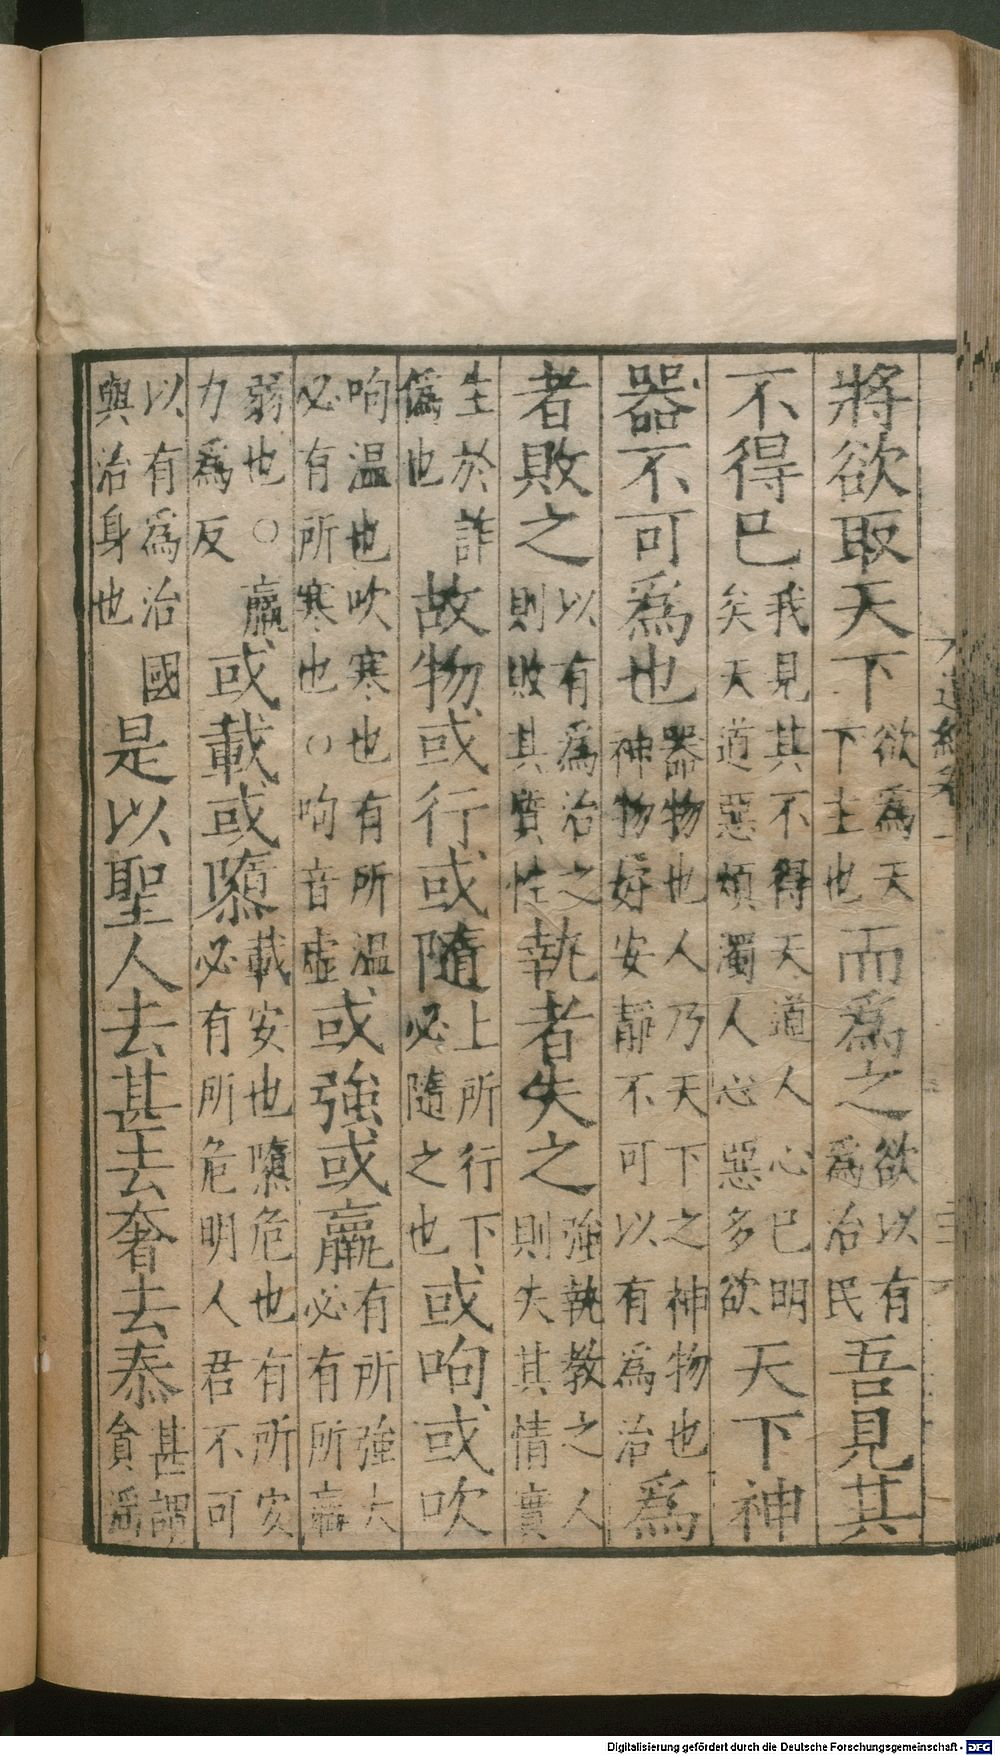 將欲取天下欲爲天下主也而爲之欲以有爲治民吾見其
不得已我見其不得天道人心已明矣天道惡煩濁人心惡多欲天下神
器不可爲也器物也人乃天下之神物也神物好安靜不可以有爲治爲
者敗之以有爲治之則敗其質性執者失之強執教之人則失其情實
生於詐僞也故物或行或隨上所行下必隨之也或呴或吹
呴温也吹寒也有所温必有所寒也○呴音虛或強或羸有所強大必有所羸
弱也○羸力爲反或載或隳載安也隳危也有所安必有所危明人君不可
以有爲治國與治身也是以聖人去甚去奢去泰甚謂貪淫
Digitalisierung gefördert durch die Deutsche Forschungsgemeinschaft - DFG